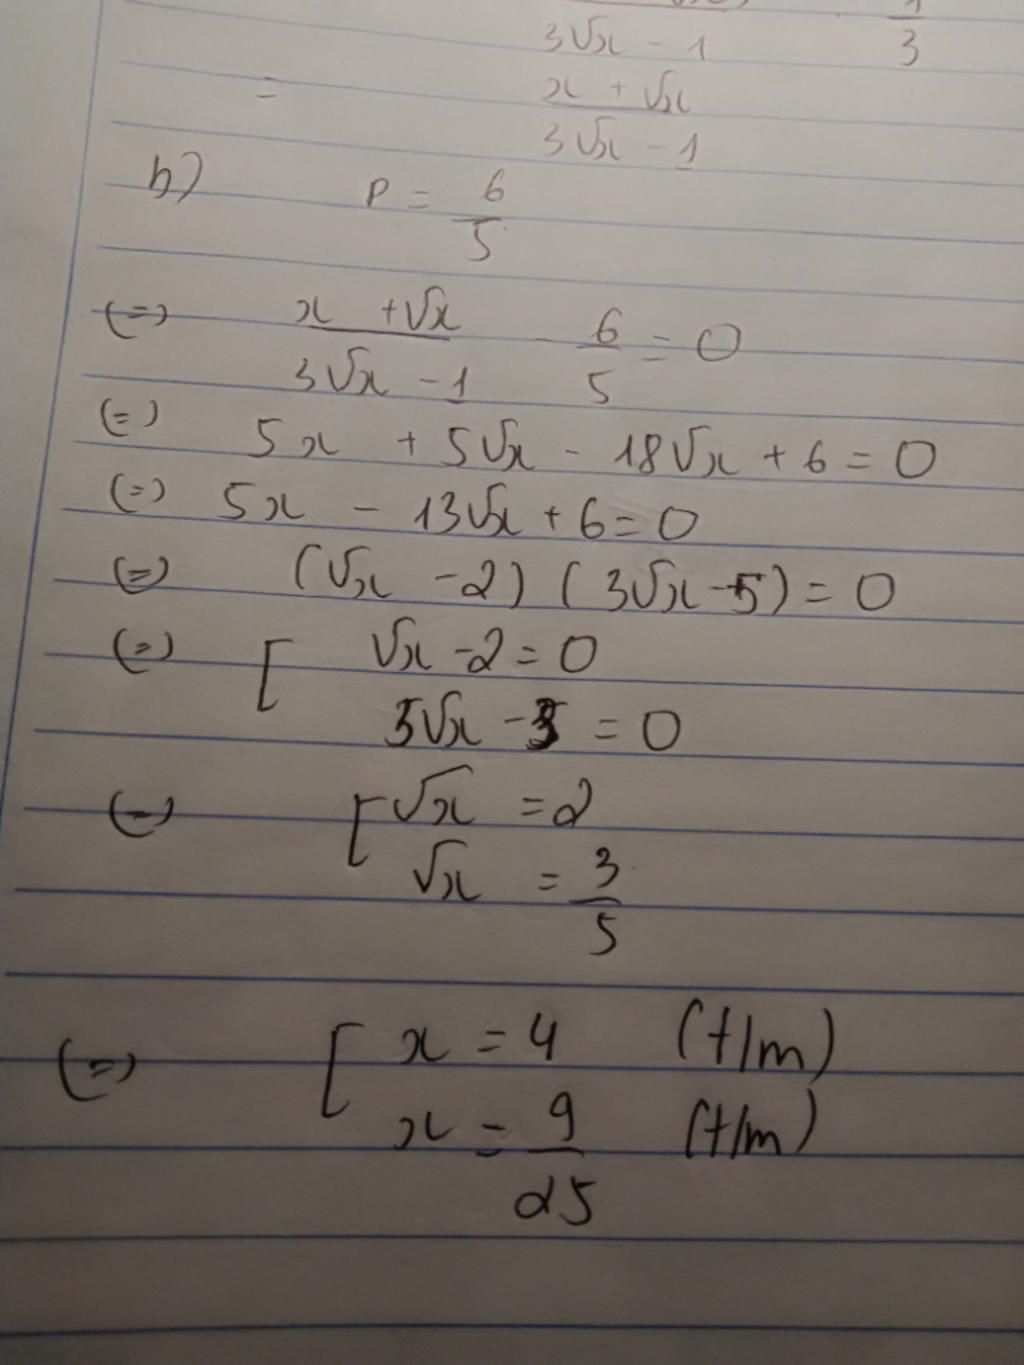 3√x - 1 3
= x + √x
3√x - 1
b) P = 6
5
(=) x + √x - 6 = 0
3√x - 1 5
(=) 5x + 5√x - 18√x + 6 = 0
(=) 5x - 13√x + 6 = 0
(=) (√x - 2) (3√x - 5) = 0
(=) [ √x - 2 = 0
5√x - 3 = 0
(=) [ √x = 2
√x = 3
5
(=) [ x = 4 (t/m)
x = 9 (t/m)
25